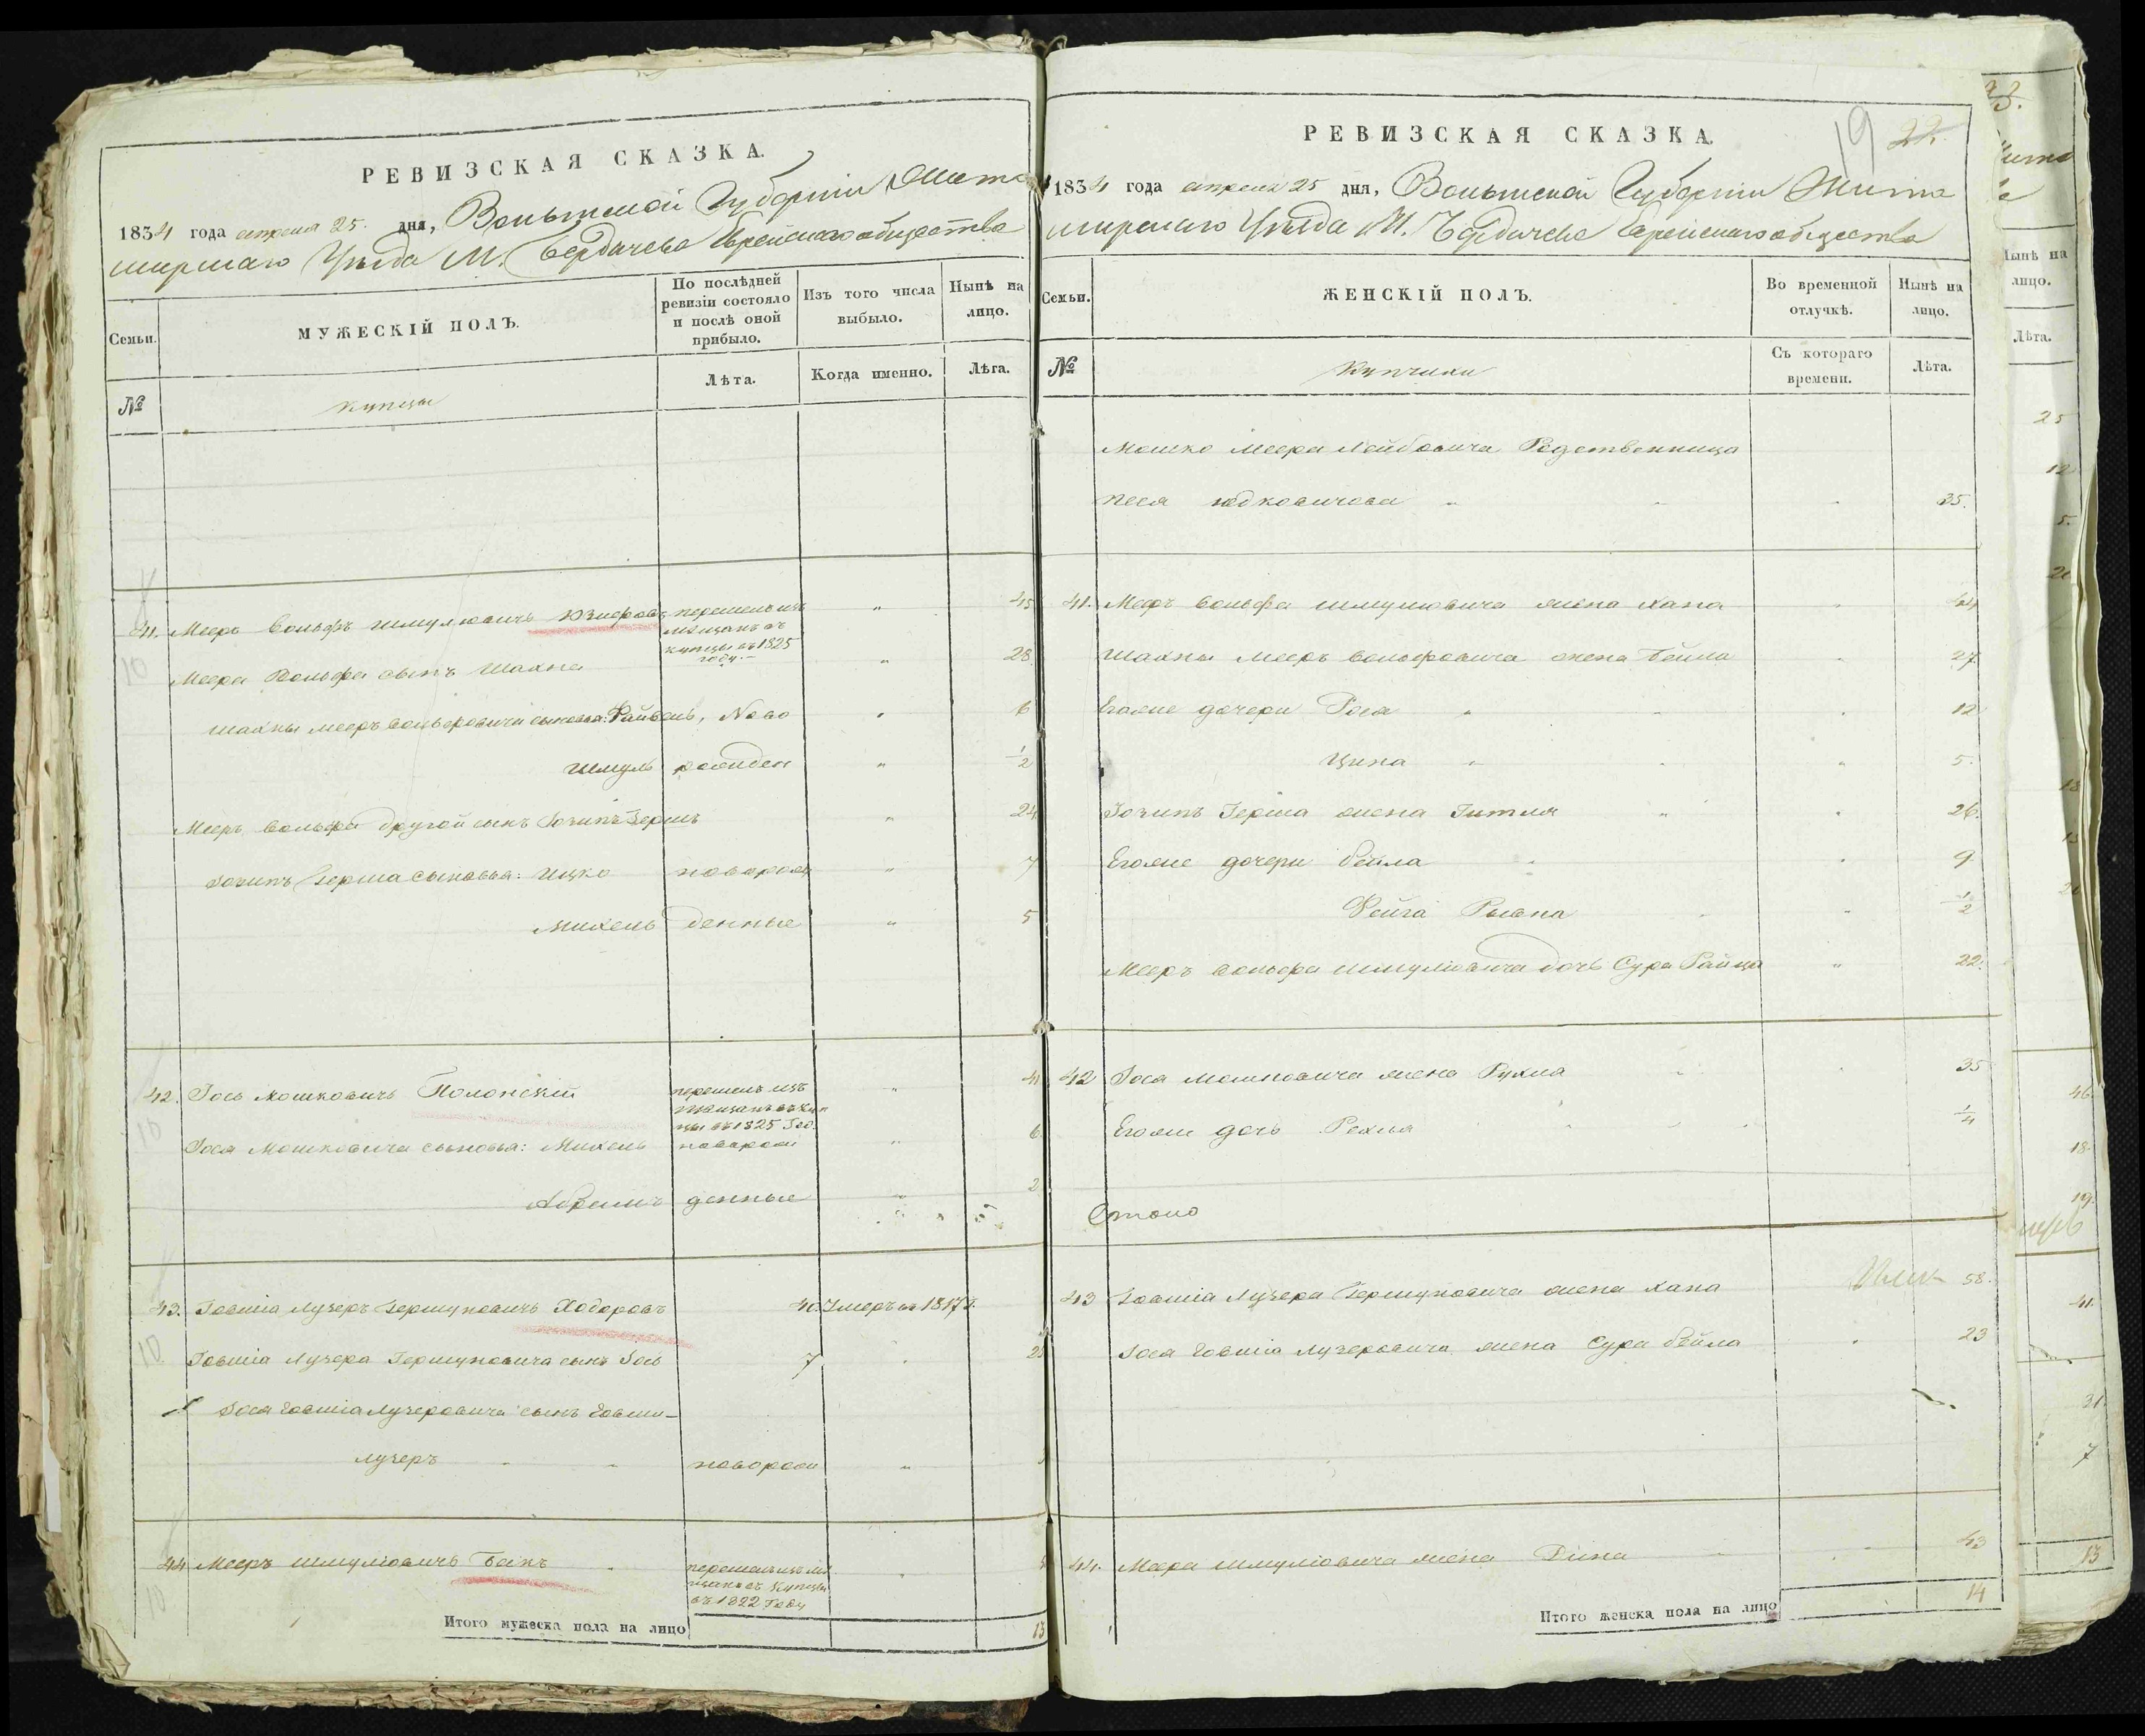 РЕВИЗСКАЯ СКАЗКА.
1834 года апреля 25. дня, Волынской Губернiи Жито
мирскаго Уѣзда М. Бердичева Еврейскаго общества
Семьи.
МУЖЕСКІЙ ПОЛЪ.
По послѣдней ревизіи состояло и послѣ оной прибыло.
Изъ того числа выбыло.
Нынѣ на лицо.
№
купцы
Лѣта.
Когда именно.
Лѣта.
41. Мееръ Вольфъ Шмулювичъ перешелъ изъ мѣщанъ въ купцы въ 1825 году 45
Меера Вольфа сынъ Шахна 28
Шахны Мееръ Вольфовича сыновья: Файвель, Ново 6
Шмуль рожден 1/2
Мееръ Вольфа другой сынъ Іозипъ Гершъ 24
Іозипъ Герша сыновья: Ицко новорож 7
Михель денные 5
42. Іось Мошковичъ Полонскій перешелъ изъ мѣщанъ въ куп цы въ 1825 Год. 41
Іося Мошковича сыновья: Михель новорож 6
Абрамъ денные 2
43. Іовшіа Лузеръ Гершуновичъ Ходоровъ 40. Умеръ въ 1817 г.
Іовшіа Лузера Гершуновича сынъ Іось 7
Іося Іовшіа Лузеровича сынъ Іовши-
Лузеръ новорож
44 Мееръ Шмулювичъ Банъ перешелъ изъ мѣ щанъ въ купцы въ 1822 Году
Итого мужеска пола на лицо 13
РЕВИЗСКАЯ СКАЗКА.
19 22.
1834 года апреля 25 дня, Волынской Губернiи Жито
мирскаго Уѣзда М. Бердичева Еврейскаго общества
Семьи.
ЖЕНСКІЙ ПОЛЪ.
Во временной отлучкѣ.
Нынѣ на лицо.
№
Купчихи
Съ котораго времени.
Лѣта.
Мошко Меера Лейбовича Родственница
Песя Юдковичова 35.
41. Мееръ Вольфа Шмулювича жена Хана 44
Шахны Мееръ Вольфовича жена Бейла 27
Егоже дочери Рося 12
Ципа 5.
Іозипъ Герша жена Гитля 26.
Егоже дочери Бейла 9
Фейга Рывка 1/2
Мееръ Вольфа Шмулювича дочь Сура Райца 22.
42 Іося Мошковича жена Рухля 35
Егоже дочь Рехля 1/4
43 Іовшіа Лузера Гершуновича жена Хана 58.
Іося Іовшіа Лузеровича жена Сура Бейла 23
44. Меера Шмулювича жена Дина 43
Итого женска пола на лицо 14
23.
Нынѣ на
лицо.
Лѣта.
25
12
5.
46.
18.
19.
41.
31
7
13